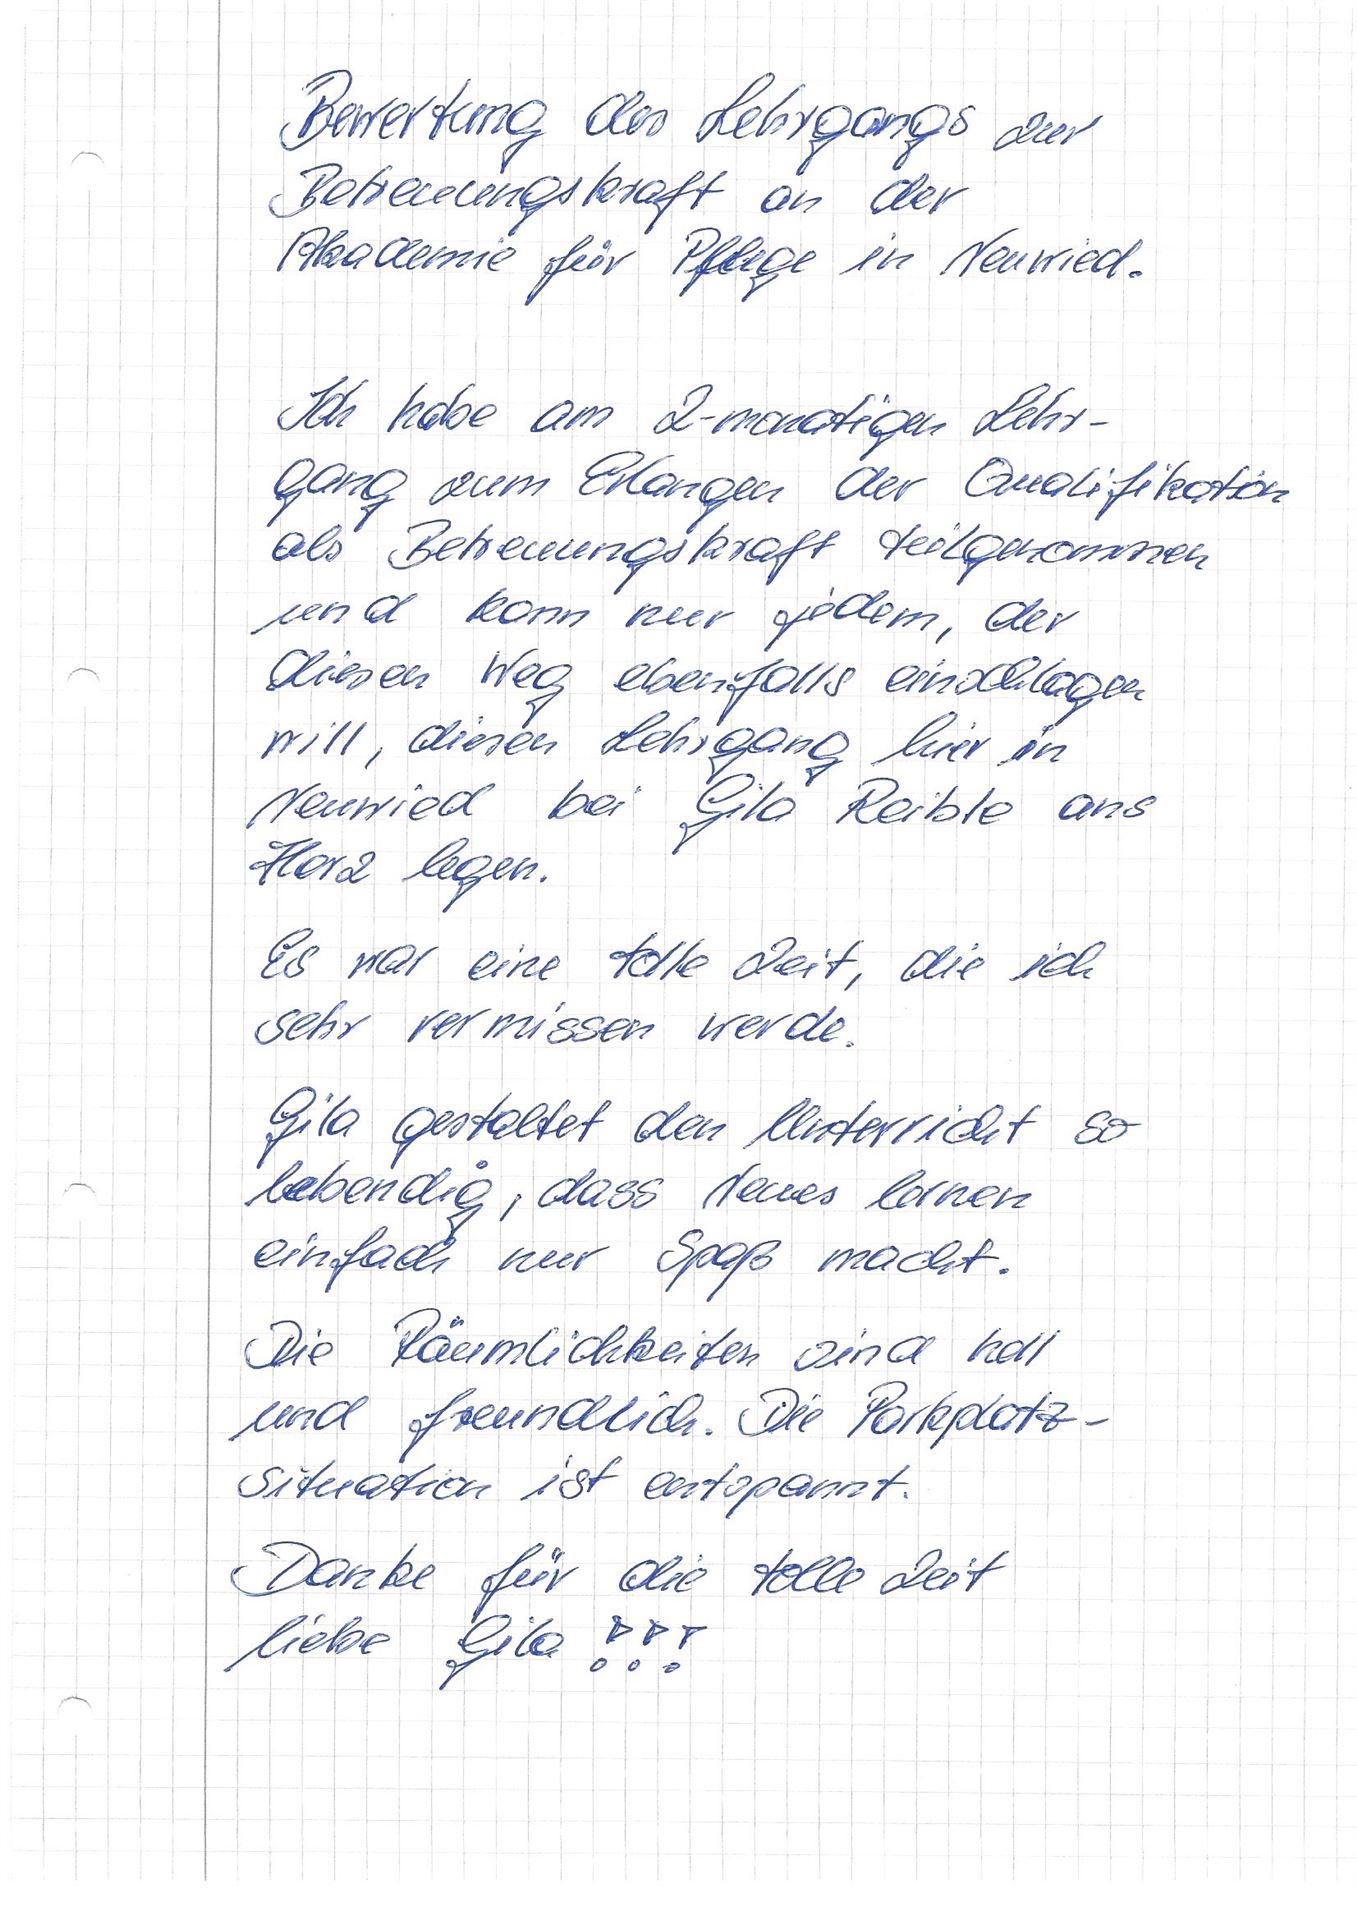 Bewertung des Lehrgangs zur
Betreuungskraft an der
Akademie für Pflege in Neuwied.
Ich habe am 2-monatigen Lehr-
gang zum Erlangen der Qualifikation
als Betreuungskraft teilgenommen
und kann nur jedem, der
diesen Weg ebenfalls einschlagen
will, diesen Lehrgang hier in
Neuwied bei Gila Reible ans
Herz legen.
Es war eine tolle Zeit, die ich
sehr vermissen werde.
Gila gestaltet den Unterricht so
lebendig, dass Neues lernen
einfach nur Spaß macht.
Die Räumlichkeiten sind hell
und freundlich. Die Parkplatz-
situation ist entspannt.
Danke für die tolle Zeit
liebe Gila !!!